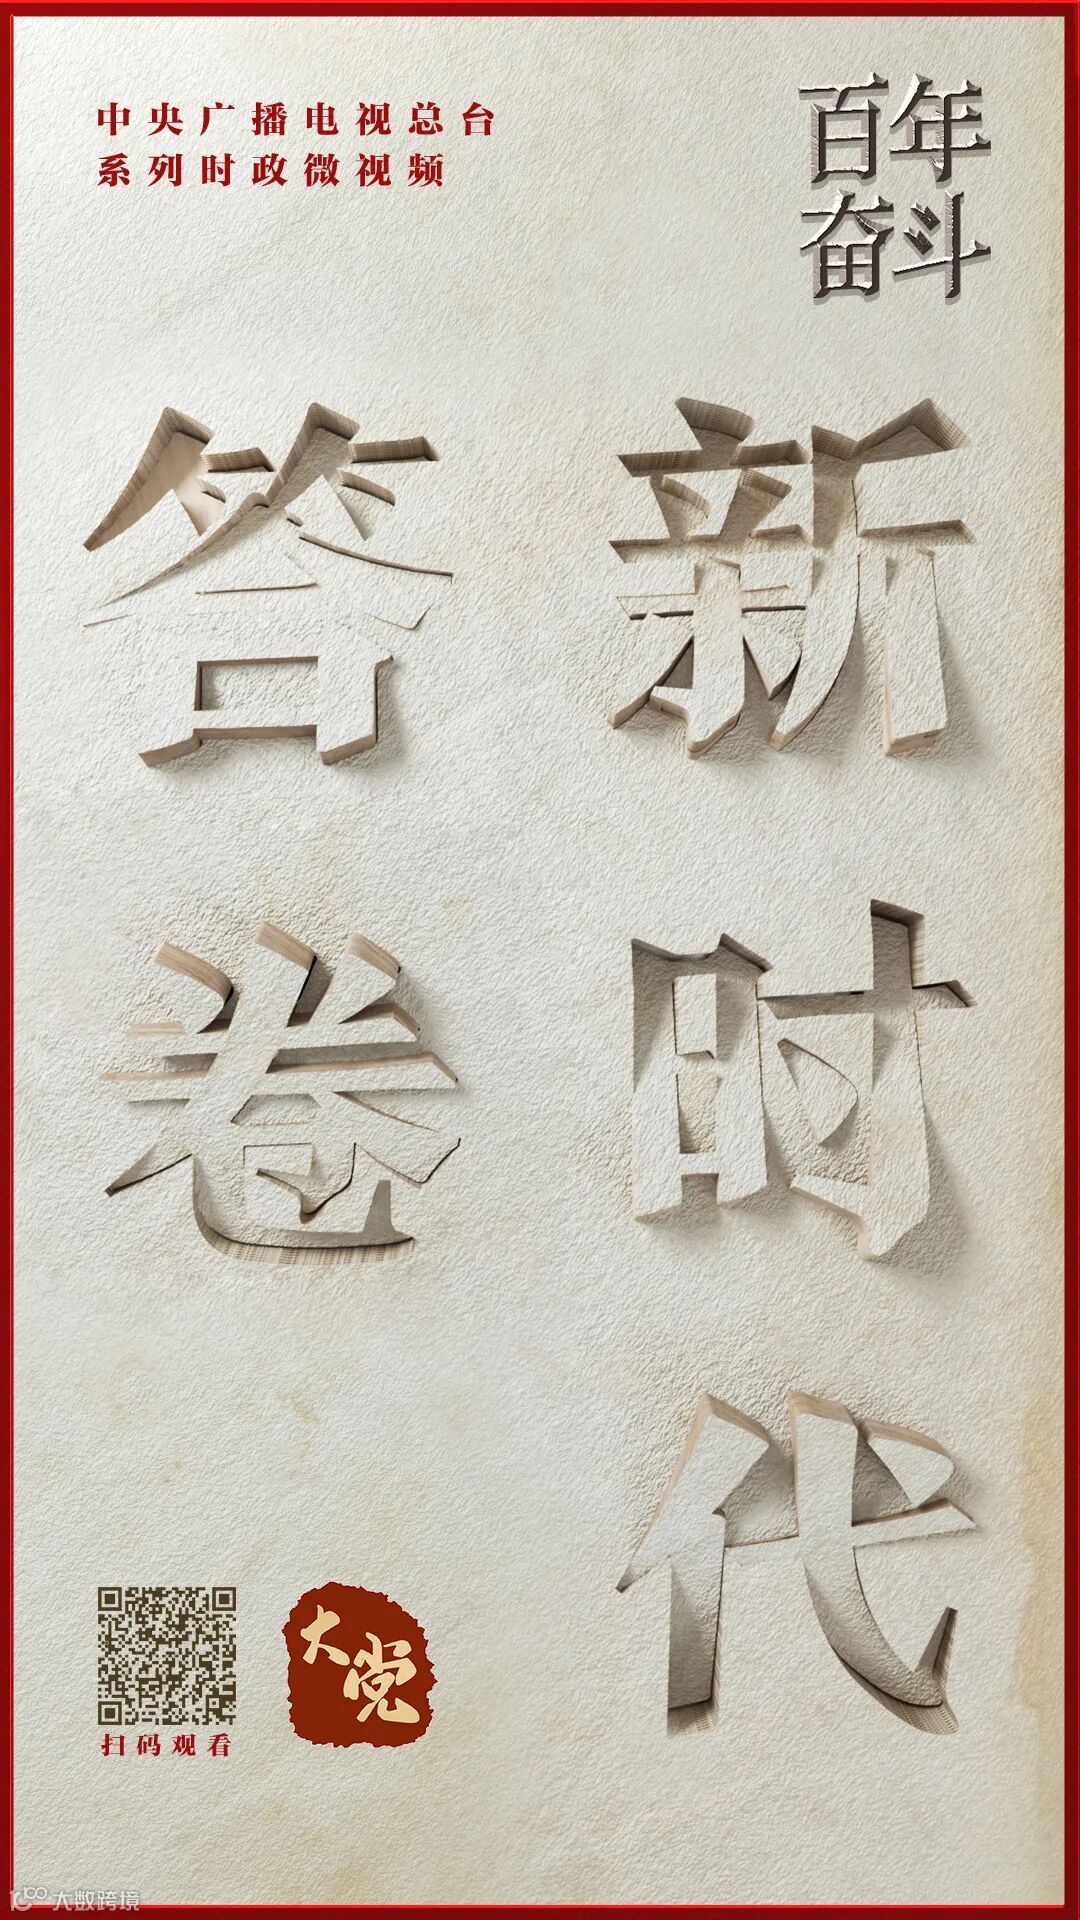 中央广播电视总台
系列时政微视频
百年
奋斗
新时代
答卷
扫码观看
大党
大数跨境